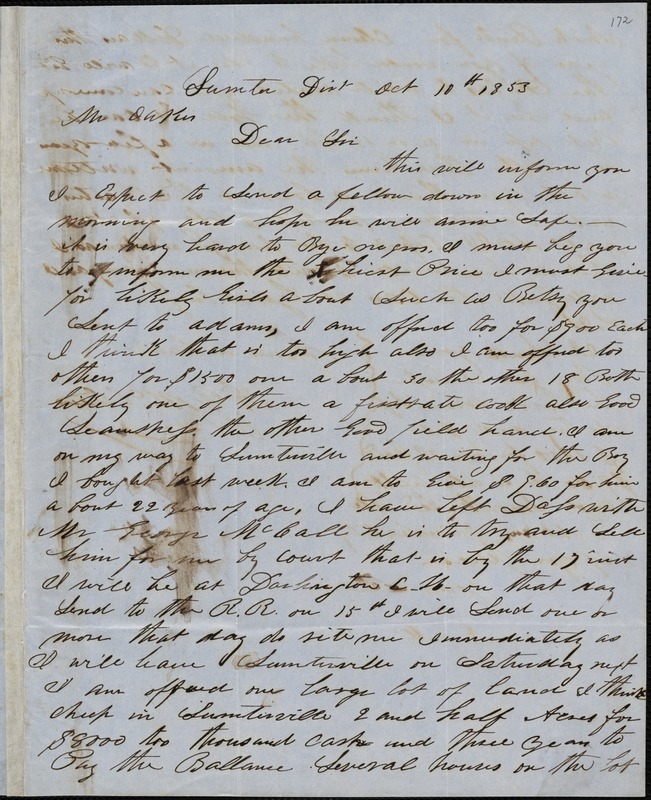 172
Sumter Dist Oct 10th 1853
Mr Oakes
Dear Sir
this will inform you
I Expect to Send a fellow down in the
morning and hope he will arive Safe.—
it is very hard to Bye negros. I must beg you
to inform me the Hiest Price I must Give
for likely Girls about Such as Betsy you
Sent to adams, I am offred too for $900 Each
I think that is too high also I am offred too
others for $1500 one a bout 30 the other 18 Both
likely one of them a firstrate cook also Good
Seamstress the other Good field hand. I am
on my way to Sumterville and waiting for the Boy
I bought last week. I am to Give $960 for him
a bout 22 years of age, I have left Dafs with
Mr George McCall he is to try and Sell
him for me by court that is by the 17 inst
I will be at Darlington C. H. on that day
Send to the R. R. on 15th I will Send one or
more that day do rite me immediately as
I will leave Sumterville on Saturday next
I am offred one large lot of land I think
cheep in Sumterville 2 and half Acres for
$8000 too thousand cash and three years to
Pay the Ballance Several houses on the lot